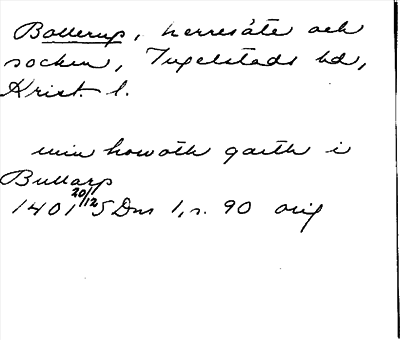 Bollerup, herresäte och
socken, Ingelstads hd,
Krist. l.
min howoth garth i
Bullarp
1401 20/12 SDns 1, s. 90 orig